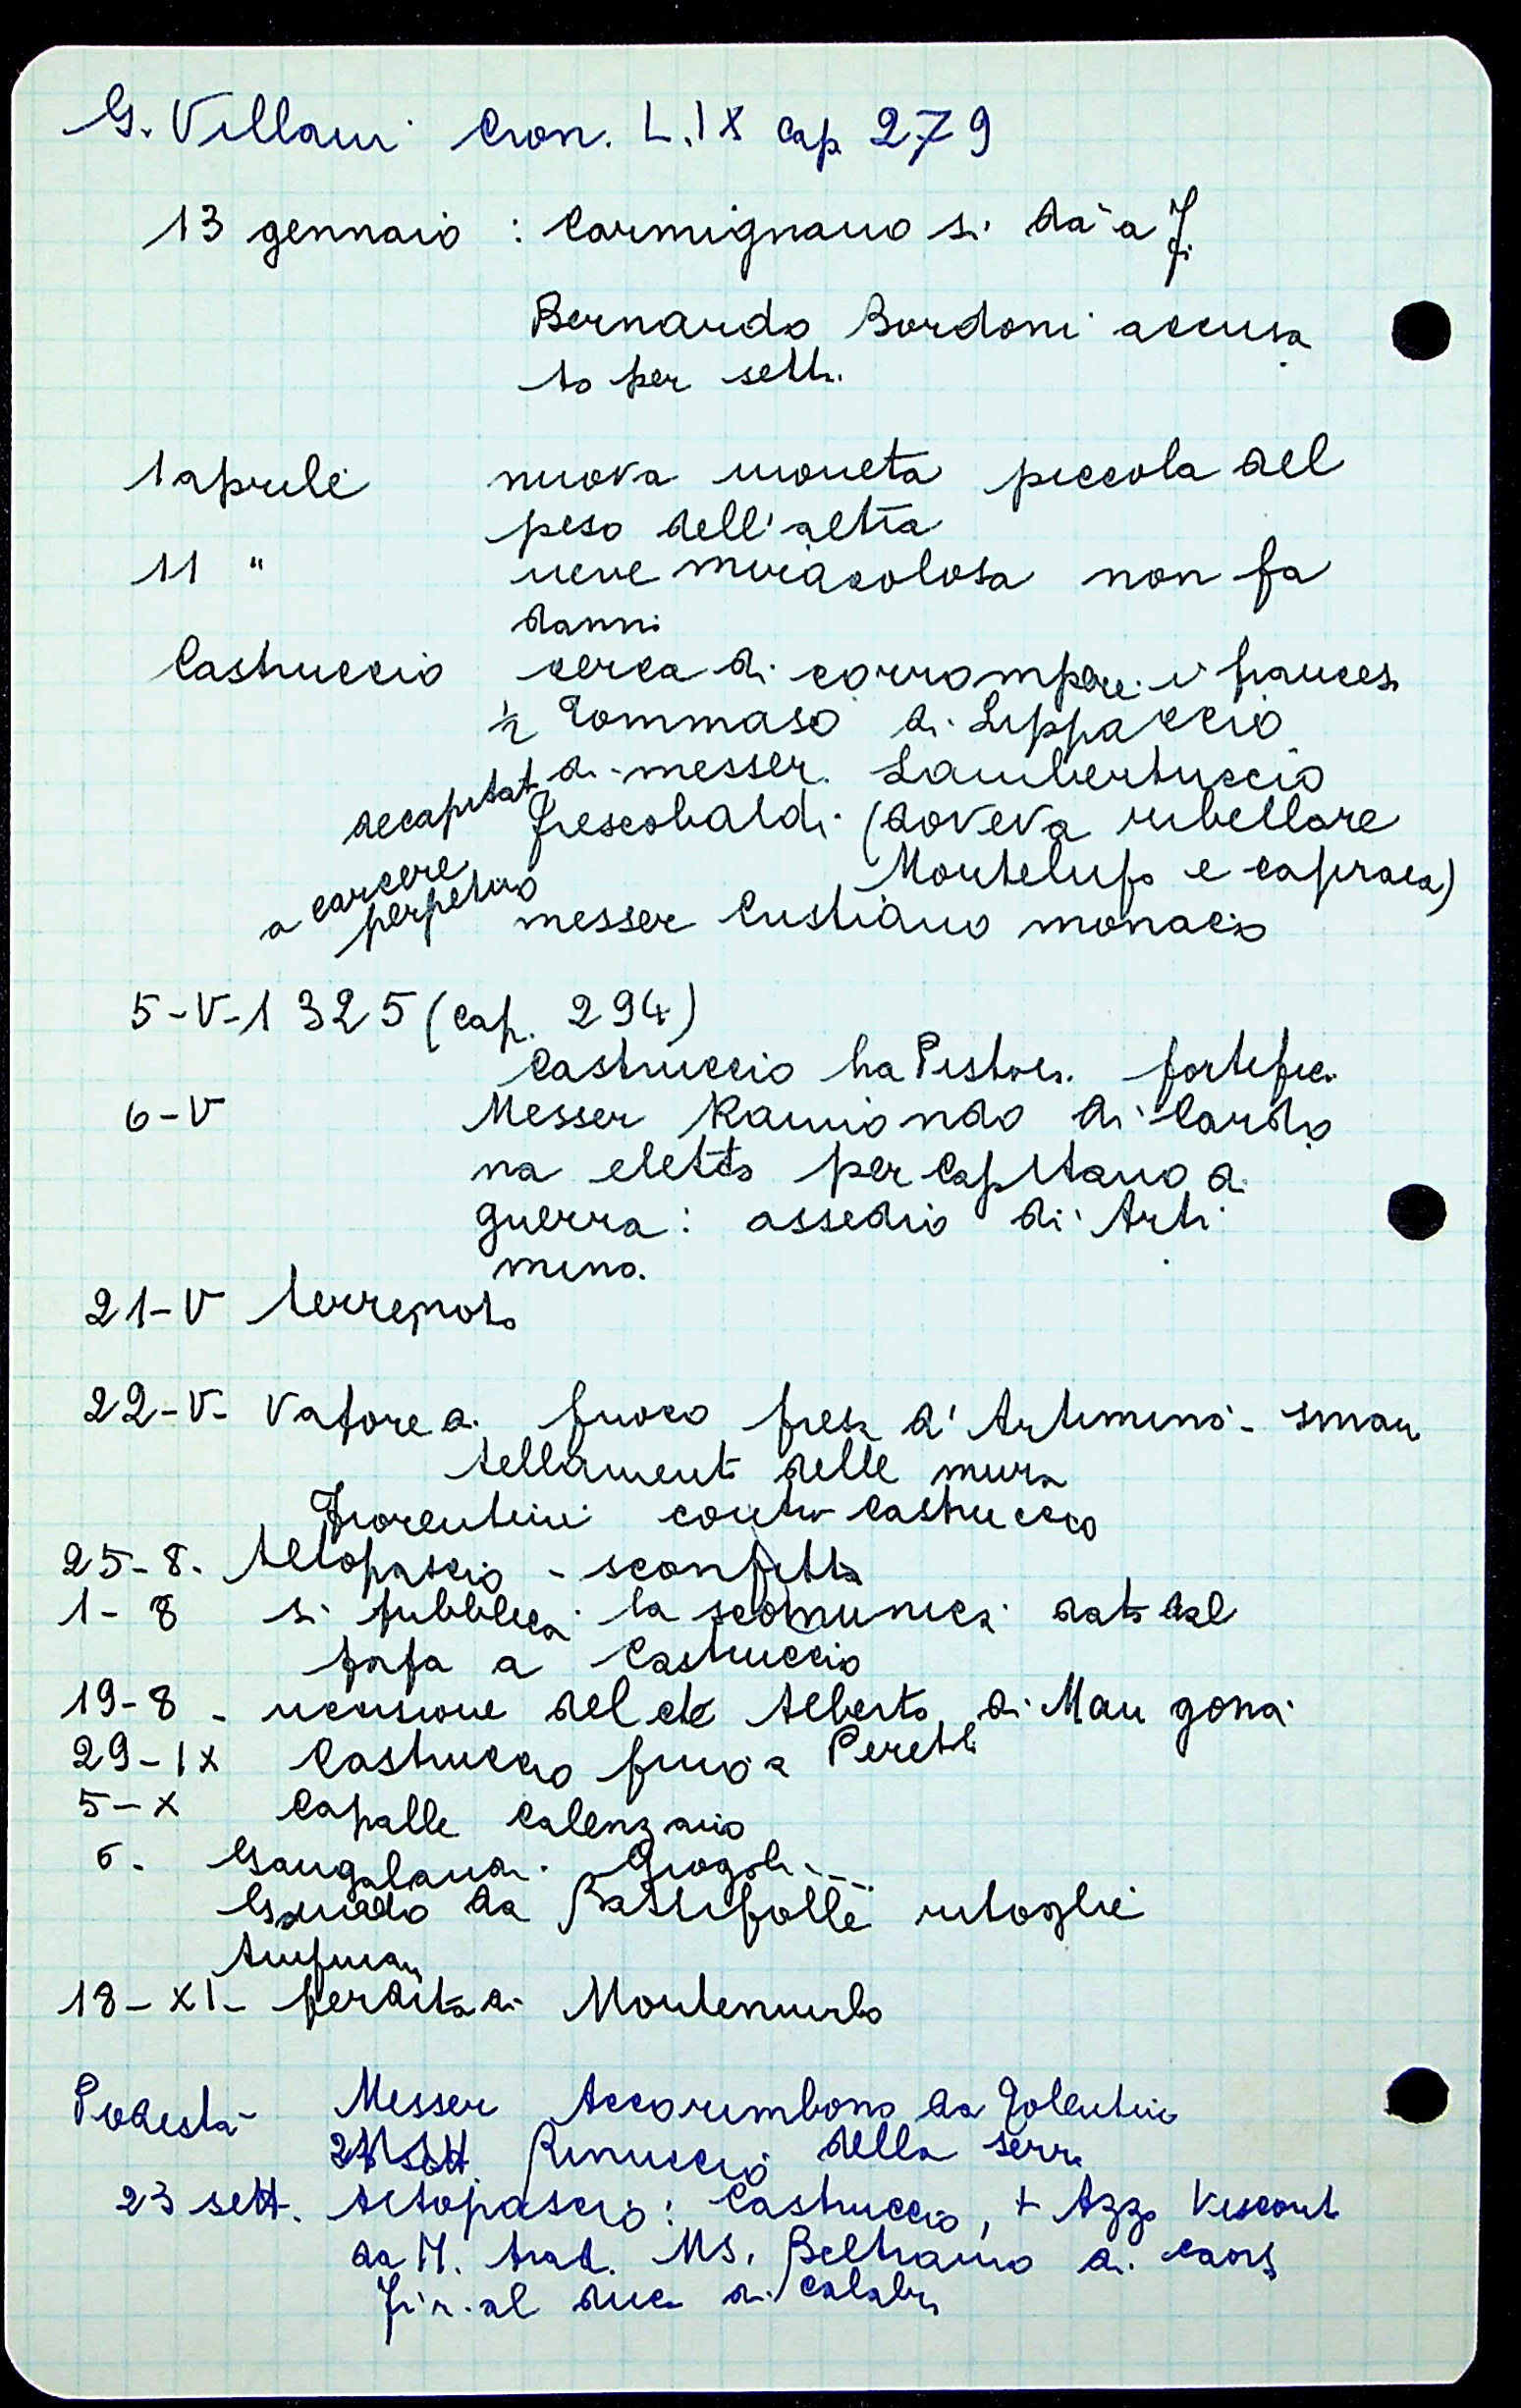 G. Villani Cron. L. IX cap 279
13 gennaio : Carmignano si dà a Fi
Bernardo Bordoni accusa
to per sett.
1 aprile nuova moneta piccola del
peso dell'altra
11 " neve miracolosa non fa
danni
Castruccio cerca di corrompere i francesi
Tommaso di Lippaccio
decapitat di messer Lambertuccio
Frescobaldi (doveva ribellare
Montelupo e Capraia)
a carcere perpetuo messer Cristiano monacio
5-V-1325 (cap. 294)
Castruccio ha Pistoia. fortifica
6-V Messer Ramondo di Cardo
na eletto per capitano di
guerra: assedio di Arti
mino.
21-V terremoto
22-V- Vapore di fuoco presa d'Artimino - sman
tellamento delle mura
Fiorentini contro Castruccio
25-8. Altopascio - sconfitta
1-8 si pubblica la scomunica data dal
papa a Castruccio
19-8 - uccisione del cte Alberto di Man gona
29-IX Castruccio fino a Peretola
5-X Capalle Calenzano
6. Gangalandi Giogoli ....
da Battifolle ritoglie
18-XI- perdita di Montemurlo
Podestà Messer Accorimbono da Tolentino
Rinuccio della Serra
23 sett. Altopascio: Castruccio, + Azzo Viscont
da M. trad. MS. Beltramo di
Fi r. al duca di Calabri